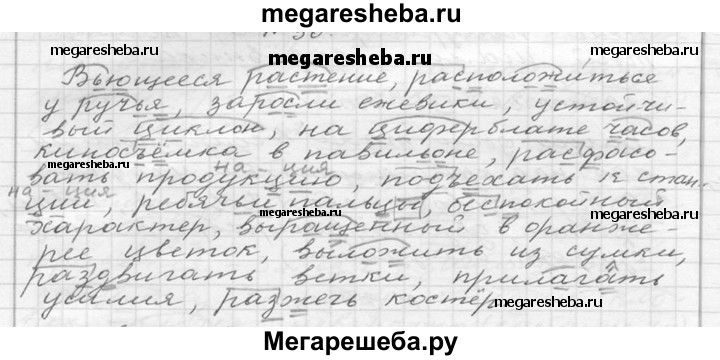 megaresheba.ru
Вьющееся растение, расположиться
у ручья, заросли ежевики, устойчи-
вый циклон, на циферблате часов,
киносъёмка в павильоне, расфасо-
на -ция
вать продукцию, подъехать к стан-
на -ция
ции, ребячьи пальцы, беспокойный
характер, выращенный в оранже-
рее цветок, выложить из сумки,
раздвигать ветки, прилагать
усилия, разжечь костёр
megaresheba.ru
megaresheba.ru
megaresheba.ru
megaresheba.ru
megaresheba.ru
megaresheba.ru
megaresheba.ru
Мегарешеба.ру